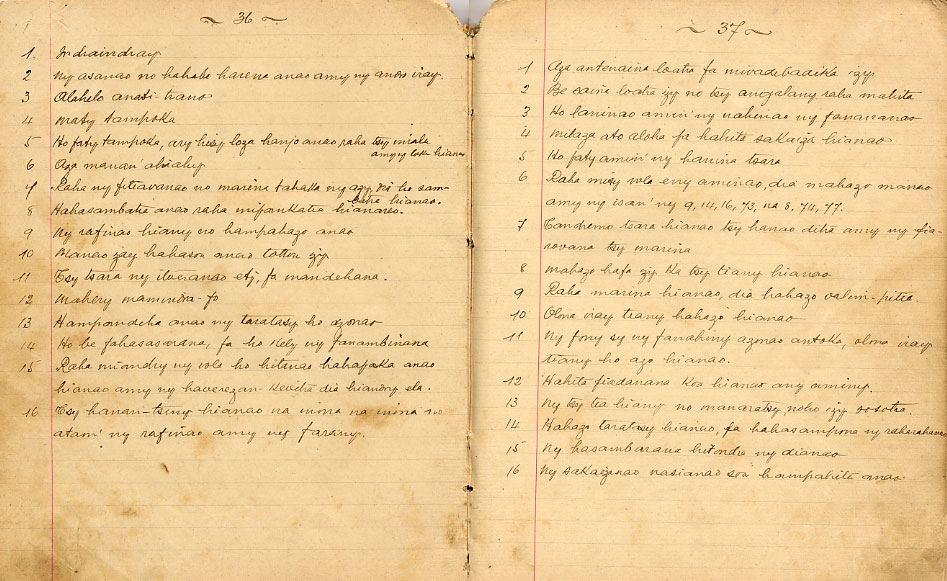 36
1. Indraindray
2 Ny asanao no hahabe harena anao amy ny andro iray.
3 Alahelo anati-trano
4 Maty tampoka
5 Ho faty tampoka, ary hisy loza hanjo anao raha tsy miala
amy ny toko hianao
6 Aza manan' ahiahy
7 Raha ny fitiavanao no marina tahaka ny azy, dia ho sam-
batra hianao.
8 Hahasambatra anao raha mifankatia hianareo.
9 Ny rafinao hiany no hampahazo anao
10 Manao zay hahasoa anao tottou zy
11 Tsy tsara ny itoeranao ety, fa mandehana.
12 Mahery mamindra-fo
13 Hampandeha anao ny taratasy ho azonao
14 Ho be fahasasarana, fa ho kely ny fanambinana
15 Raha miandry ny volo ho hitanao hahafaka anao
hianao amy ny haverezan-kevitra dia hiandry ela.
16 Tsy hanan-tsiny hianao na inona na inona no
atam' ny rafinao amy ny farany.
37
1 Aza antenaina loatra fa mivadibadika izy.
2 Be saina loatra zy no tsy angalany raha mahita
3 Ho laninao amin' ny nahenao ny fanananao
4 Mitaza ato aloha fa hahita sakaiza hianao
5 Ho faty amin' ny hanina tsara
6 Raha misy vola eny aminao, dia mahazo manao
amy ny isan' ny 9, 14, 16, 73, na 8, 74, 77.
7 Tandremo tsara hianao tsy hanao diha amy ny fia-
rovana tsy marina
8 Mahazo hafa zy ka tsy tiany hianao
9 Raha marina hianao, dia hahazo valim-pitia.
10 Olona iray trany hahazo hianao
11 Ny fony sy ny fanahiny azonao antoka, olona iray
trany ho azo hianao.
12 Hahita fiadanana koa hianao any aminy.
13 Ny tsy tia hiany no manaratsy noho izy sosotra.
14 Hahazo taratasy hianao, fa hahasampona ny raharahanao
15 Ny hasambarana hitondra ny dianao
16 Ny sakaizanao nasianao soa hampahita anao.